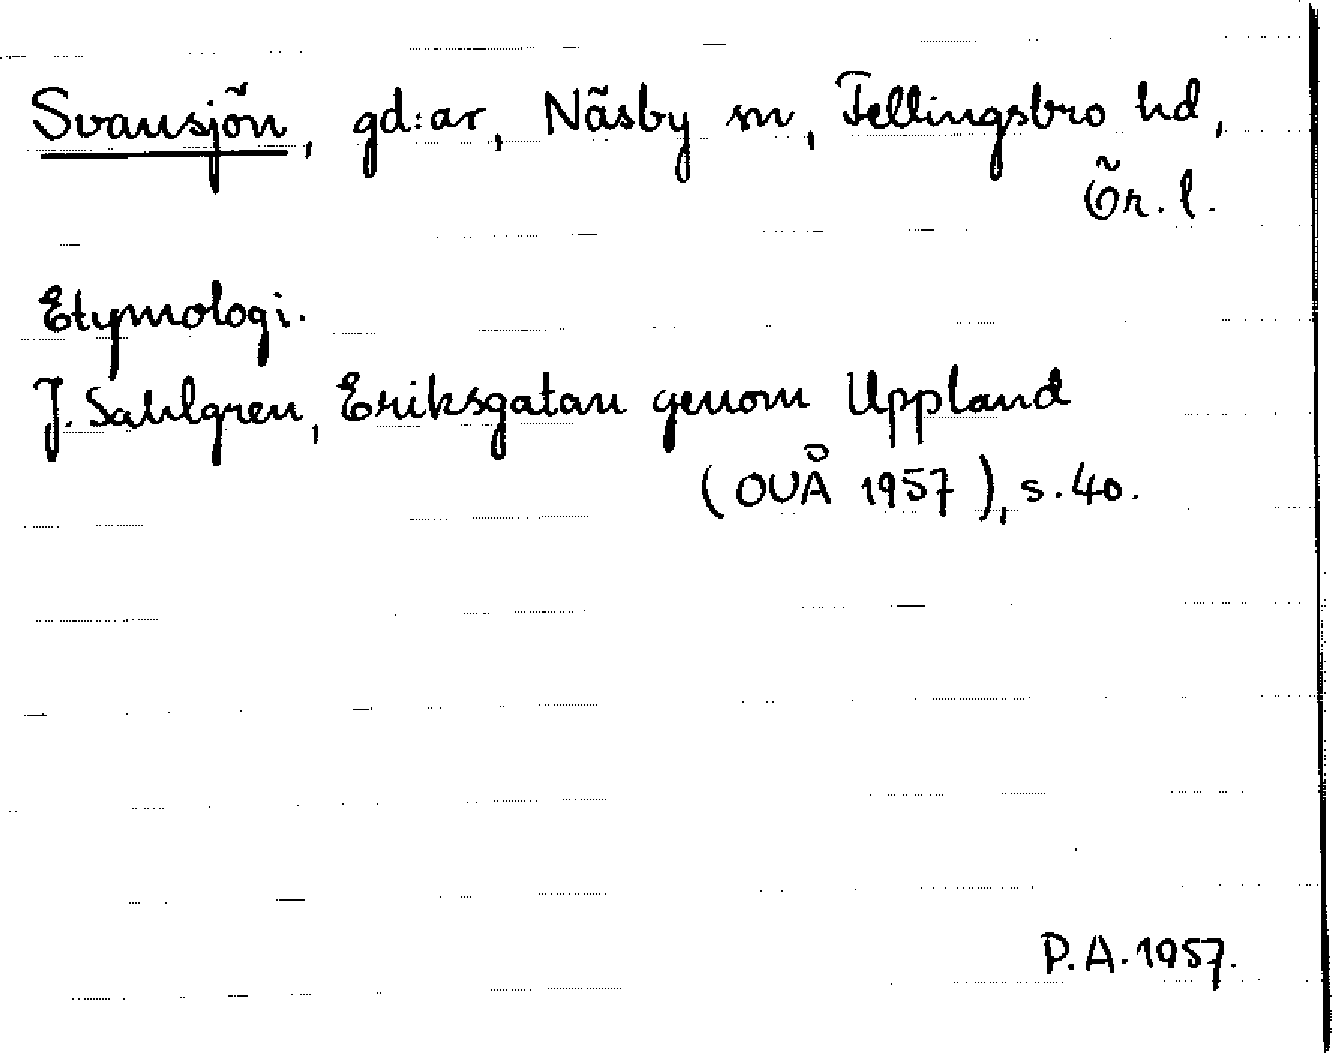 Svansjön, gd:ar, Näsby sn, Fellingsbro hd,
Ör. l.
Etymologi.
J. Sahlgren, Eriksgatan genom Uppland
(OUÅ 1957), s. 40.
P.A. 1957.